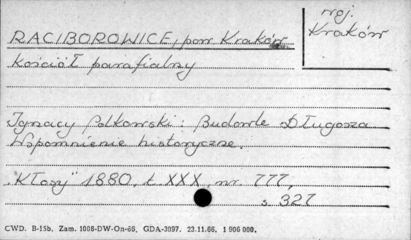 woj.
Kraków
RACIBOROWICE, pow. Kraków
kościół parafialny
Ignacy Polkowski: Budowle Długosza
Wspomnienie historyczne.
"Kłosy" 1880, t. XXX, nr. 777,
s. 327
CWD. B-15b. Zam. 1808-DW-On-66. GDA-3097. 23.11.66. 1 906 000.